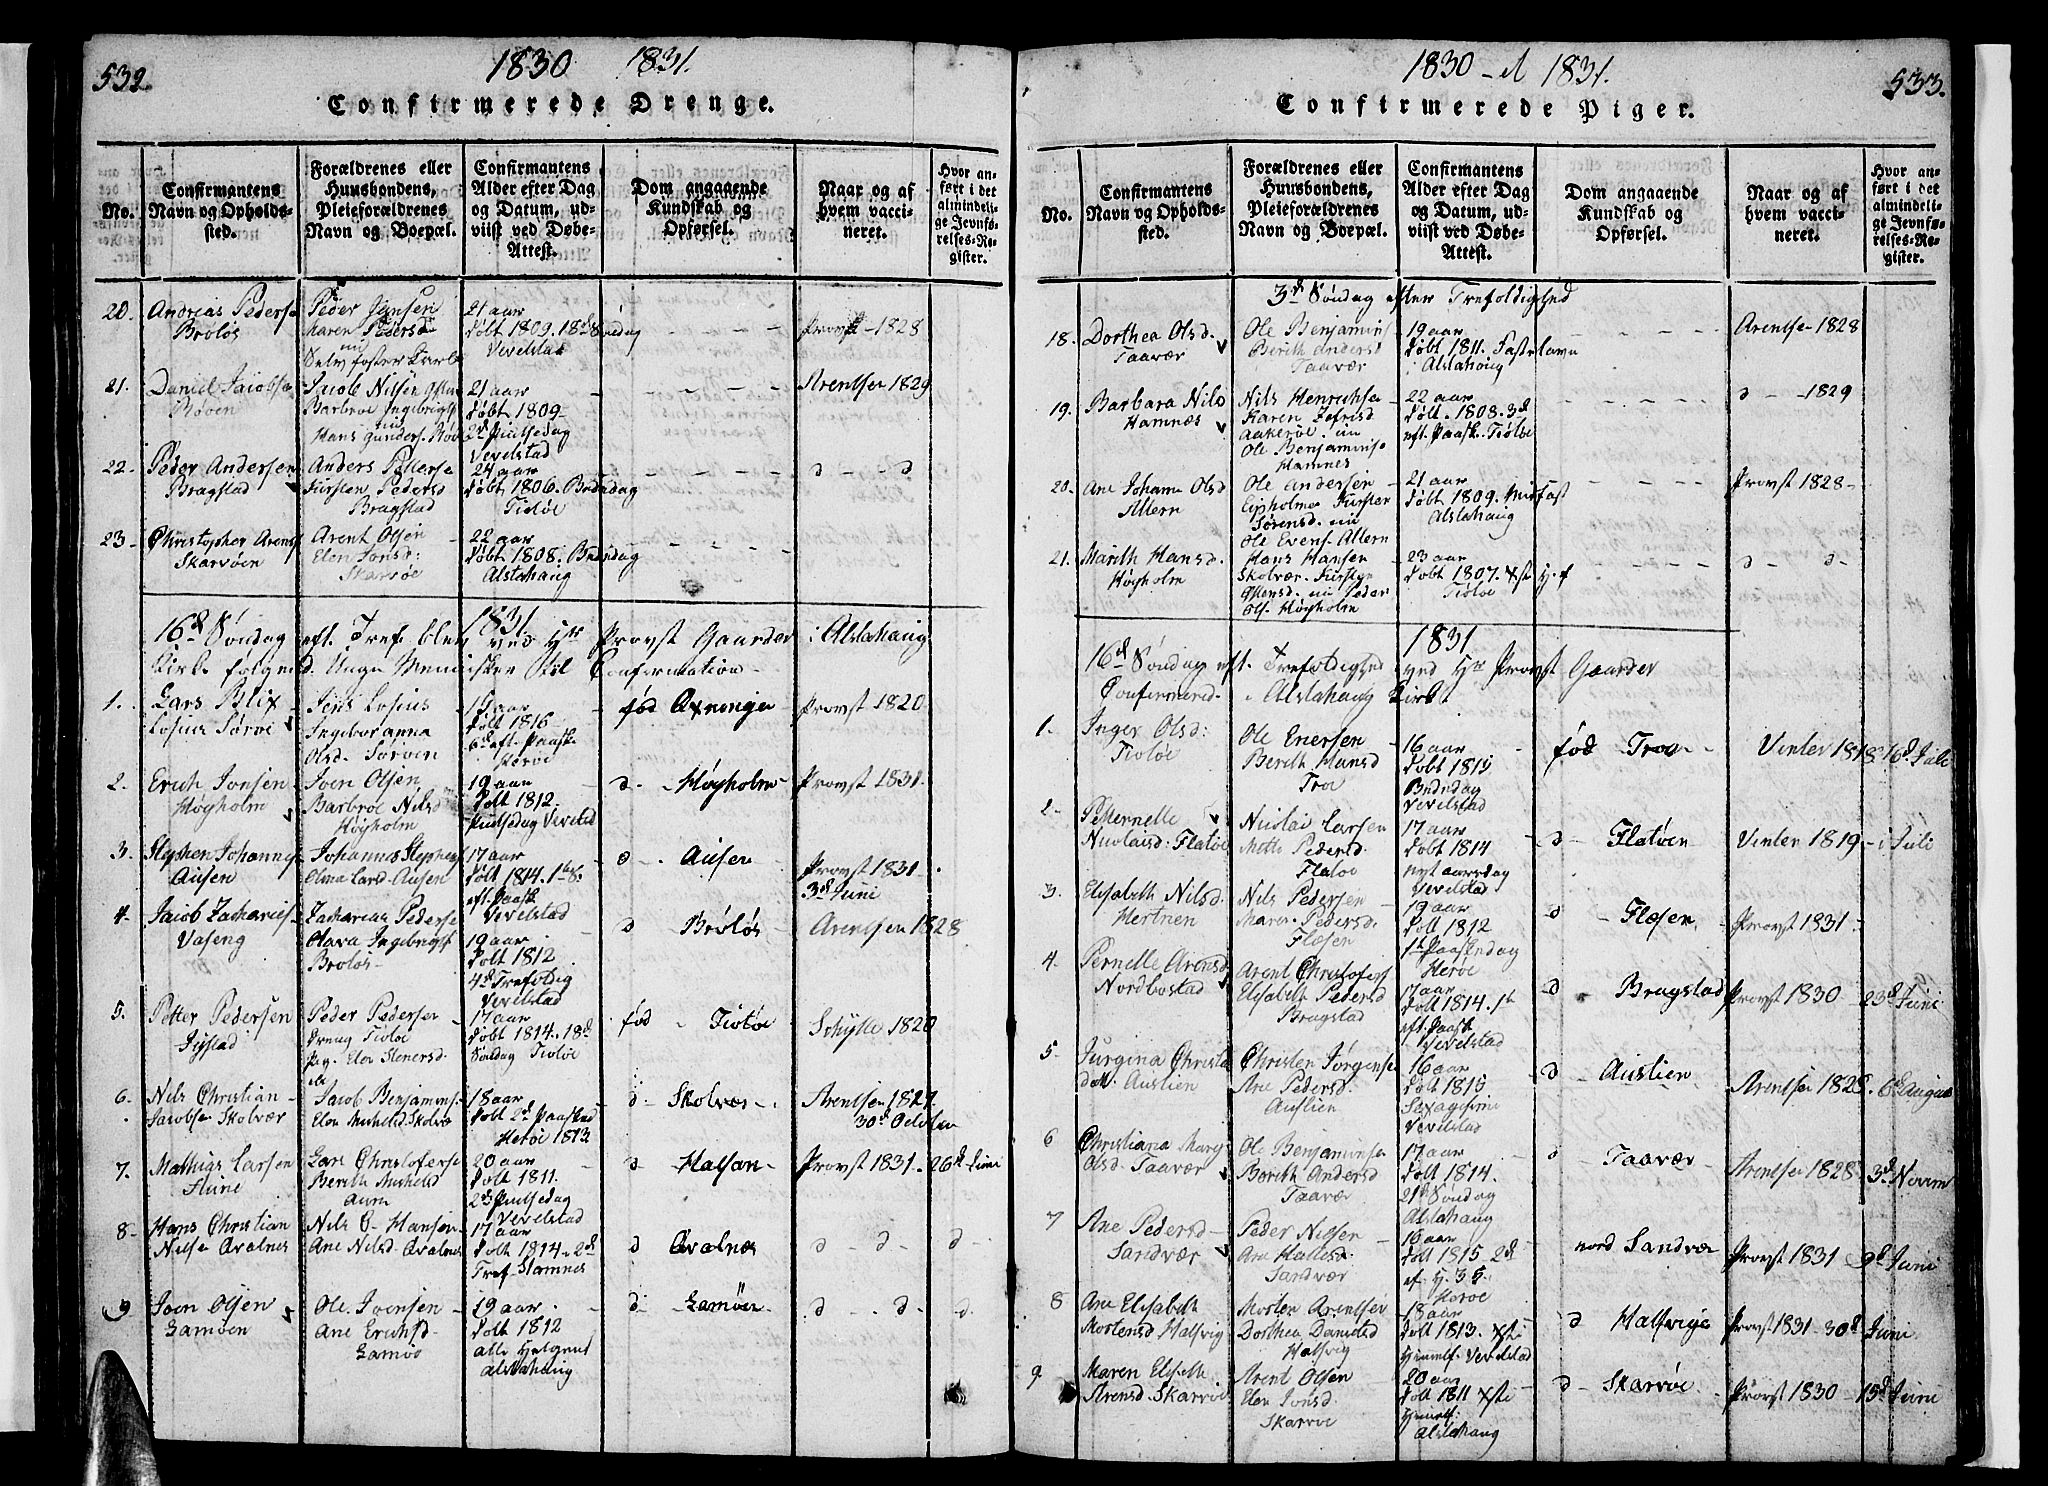 532.
1830 1831.
Confirmerede Drenge.
No.
Confirmantens
Navn og Opholds-
sted.
Forældrenes eller
Huusbondens,
Pleieforældrenes
Navn og Boepæl.
Confirmantens
Alder efter Dag
og Datum, ud-
viist ved Døbe-
Attest.
Dom angaaende
Kundskab og
Opførsel.
Naar og af
hvem vacci-
neret.
Hvor an-
ført i det
almindeli-
ge Jevnfø-
relses-Re-
gister.
20. Andreas Peders
Broløs
Peder Jensen
Maren Pedersd
nu
21 aar
Døbt 1809. 18d Søndag
Vevelstad
Provst - 1828
21. Daniel Jacobse
Røven
Jacob Nilsen
Barbroe Ingebrigts
nu
Hans Gunders. Røv
21 aar
Døbt 1809-
2d Pintsedag
Vevelstad
Arentsen 1829
22. Peder Andersen
Bragstad
Anders Pettersen
Kirsten Pedersd
Bragstad
24 aar
Døbt 1806.
Tiøtøe
d - - d
23 - Christopher Arens
Skarvøen
Arent Olsen
Elen Jonsd:
Skarvøe
22 aar
Døbt 1808.
Alstahaug
1831
16d Søndag eft. Tref. blev ved Hr Provst Gaarder i Alstahaug
Kirke følgend. Unge Mennisker til Confirmation-
1. Lars Blix
Losius Sørvoe
Jens Losius
Ingeboranna
Olsd. Sørvoen
15 aar
Døbt 1816
6d eft. Paaske
fød
Provst 1820
2. Erich Jonsen
Høyholm
Joen Olsen
Barbroe Nilsd
Høyholm
19 aar
Døbt 1812.
Pintsedag Vevelstad
d - Høyholm-
Provst 1831.
3. Stephen Johannes
Ausen
Johannes Stephens
Larsd - Ausen
17 aar
Døbt 1814. 1te S.
eft. Paask
Vevelstad
d - Ausen
Provst 1831.
3d Juni
4 - Jacob Zacharies
Vaseng
Zacharias Peders
Ingebrigts
Broløs-
19 aar
Døbt 1812
4d Trefoldig
Vevelstad
d - Broløs
Arentsen 1828
5. Petter Pedersen
Peder Pedersen
Dreng Tiøtøe
Pig. Elen Stenersd.
17 aar
Døbt 1814. 18d
Søndag Tiøtøe
fød - Tiøtøe
Schytte 1820
6. Nils Christian
Jacobse Skolvær
Jacob Benjamins
Elen Michelsd Skolvæ
18 aar
Døbt 2d Paasked
Herøe 1813
d - Skolvær-
Arentsen 1827.
30d October
7. Mathias Larsen
Lars Christoferse
Berith Michelsd
20 aar
Døbt 1811.
2d Pintsedag
Vevelstad
d - Halsan-
Provst 1831. 26d Juni
8 - Hans Christian
Nilse Qvalnes
Nils C- Hansen
Ane Nilsd. Qvalnes
17 aar
Døbt 1814. 2d
Tref. Stamnes
d Qvalnes
d - d - d
9 Joen Olsen
Gamøen
Ole Joensen
Ane Erichsd.
Gamøe
19 aar
Døbt 1812
alle Helgens
Alstahaug
d - Gamøen
d - d - d.
1830 - et 1831.
533.
Confirmerede Piger.
No.
Confirmantens
Navn og Opholds-
sted.
Forældrenes eller
Huusbondens,
Pleieforældrenes
Navn og Boepæl.
Confirmantens
Alder efter Dag
og Datum, ud-
viist ved Døbe-
Attest.
Dom angaaende
Kundskab og
Opførsel.
Naar og af
hvem vacci-
neret.
Hvor an-
ført i det
almindeli-
ge Jevnfø-
relses-Re-
gister.
3d Søndag efter Trefoldighed
18. Dorthea Olsd.
Taavær
Ole Benjamins
Berith Andersd
Taavær
19 aar
Døbt 1811. Fastelavn
Alstahaug
Arentsen 1828
19. Barbara Nils
Hamnæs
Nils Henrichsen
Karen
nu
Ole Benjamins
Hamnes
22 aar
Døbt. 1808. 3d
eft. Paask. Tiøtøe
d - - 1829
20. Ane Johanna Olsd
Altern
Ole Andersen
Kirsten
Sørensd. nu
Ole Evens. Altern
21 aar
Døbt 1809.
Alstahaug
Provst 1828 -
21. Marith Hansd.
Høyholm
Hans Hansen
Skolvær. Kirsten
nu Peder
Ols. Høyholm
23 aar
Døbt 1807.
Tiøtøe
d - d-
1831
16d Søndag eft. Trefoldighed ved Hr Provst Gaarder
Confirmered. i Alstahaug Kirke
1. Inger Olsd:
Tiøtøe
Ole Enersen
Berith Hansd
Troe
16 aar
Døbt 1815
Vevelstad
fød Troe-
Vinter 1818 16d Juli
2- Petternelle
Nicolaisd: Flatøe
Nicolai Larsen
Mette Pedersd.
Flatøe
17 aar
Døbt 1814
nytaarsdag
Vevelstad
d - Flatøen
Vinter 1819 - i Juli
3. Elisabeth Nilsd
Nils Pedersen
Maren Pedersd.
Flæsen
19 aar
Døbt 1812
1te Paaskedag
Herøe
d - Flæsen
Provst 1831.
4. Pernelle Arensd
Nordbostad
Arent Christofers
Elisabeth Pedersd
Bragstad
17 aar
Døbt 1814. 1te
eft. Paask
Vevelstad
d - Bragstad
Provst 1830 - 23d Juni
5- Jurgina Christe
datt. Austien
Christen Jørgense
Ane Pedersd.
Austien
16 aar
Døbt 1815
Vevelstad
d - Austien
Arentsen 1828.
6 Christiana
Olsd. Taavær
Ole Benjaminse
Berith Andersd
Taavær
17 aar
Døbt 1814.
21d Søndag
Alstahaug
d - Taavær
Arentsen 1828 3d Novem
7 Ane Pedersd
Sandvær
Peder Nilsen
Ane
Sandvær
16 aar
Døbt 1815 2d
Herøe
nord Sandvæ
Provst 1831 9d Juni
8 Ane Elisabeth
Mortensd Halsvig
Morten Arentsen
Dorthea Danielsd
Halsvig
18 aar
Døbt 1813.
Himmelf. Vevelstad
d - Halsvige
Provst 1831 - 30d Juni
9. Maren Elisabeth
Arensd. Skarvøe
Arent Olsen
Elen Jonsd.
Skarvøe
20 aar
Døbt 1811
Himmelf.
Alstahaug
d - Skarvøe
Provst 1830 - 15d Juni